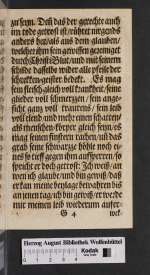 zu seyn. Daß das der gerechte auch
im tode getrost ist/rühret nirgend
anders her/als aus dem glauben/
welcher ihm sein gewissen gereiniget
durch Christi Blut/und mit seinem
schilde dasselbe wider alle pfeile der
schrecken-geister bedeckt. Es mag
sein fleisch gleich voll kranckheit/seine
glieder voll schmertzen/sein ange-
sicht gantz voll traurens/sein leib
voll elend/und mehr einen schatten/
als menschen-körper gleich seyn/es
mag seinen finstern rachen/als das
grab seine schwartze höhle noch ei-
nes so tieff gegen ihm auffsperren/so
spricht er doch getrost: Ich weiß/an
wen ich glaube/und bin gewiß/daß
er kan meine beylage bewahren bis
an jenen tag/ich bin gewiß/er werde
mir meinen leib widerum aufer-
G 4 wek-
Herzog August Bibliothek Wolfenbüttel
Kodak